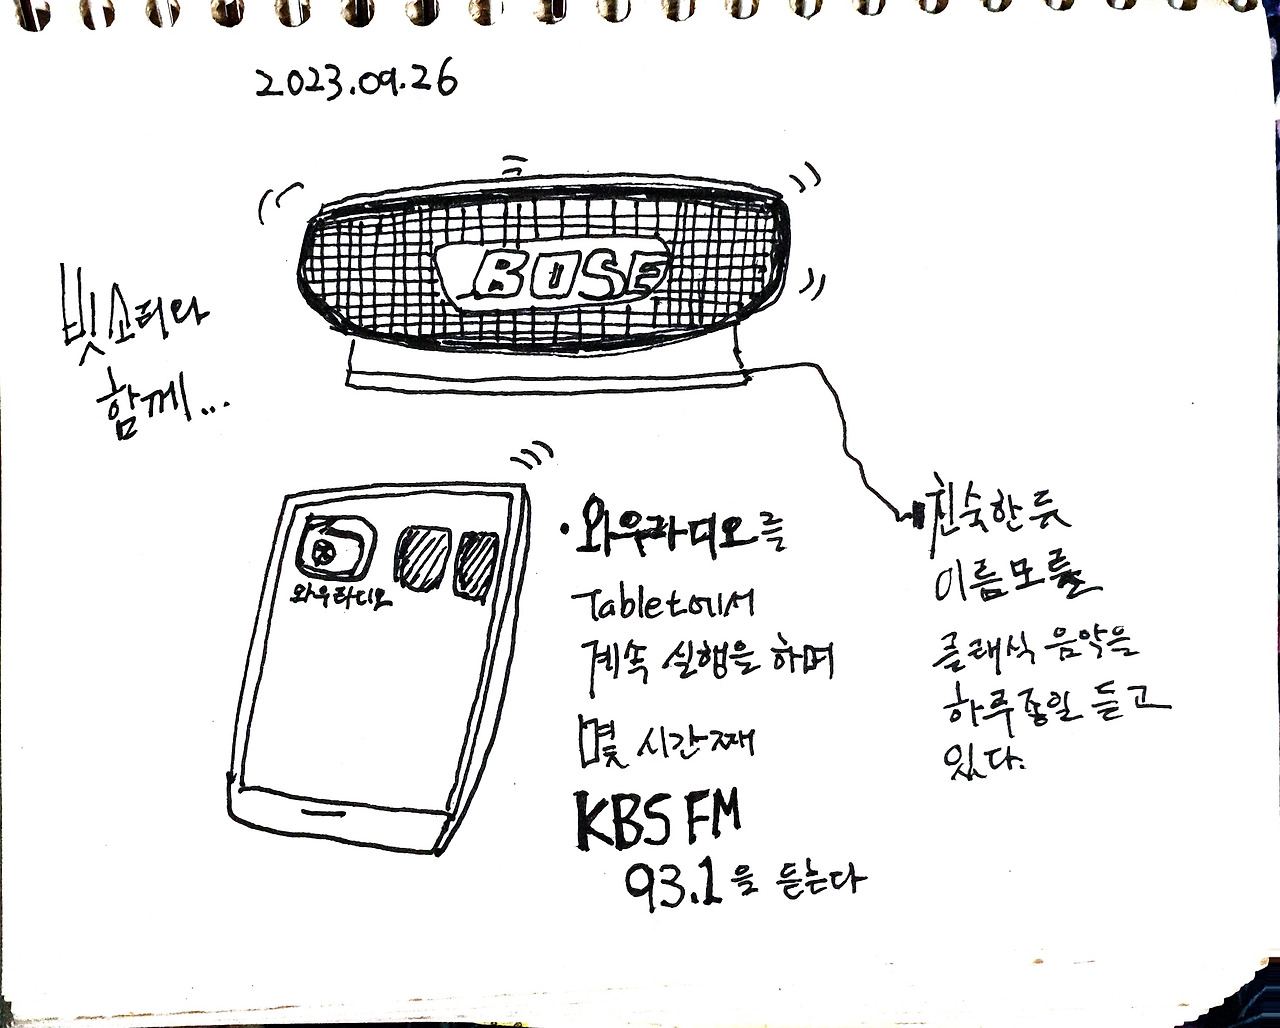 2023.09.26
BOSE
빗소리와
함께...
와우라디오
· 와우라디오를
Tablet에서
계속 실행을 하며
몇 시간째
KBS FM
93.1을 듣는다
친숙한 듯
이름 모를
클래식 음악을
하루종일 듣고
있다.